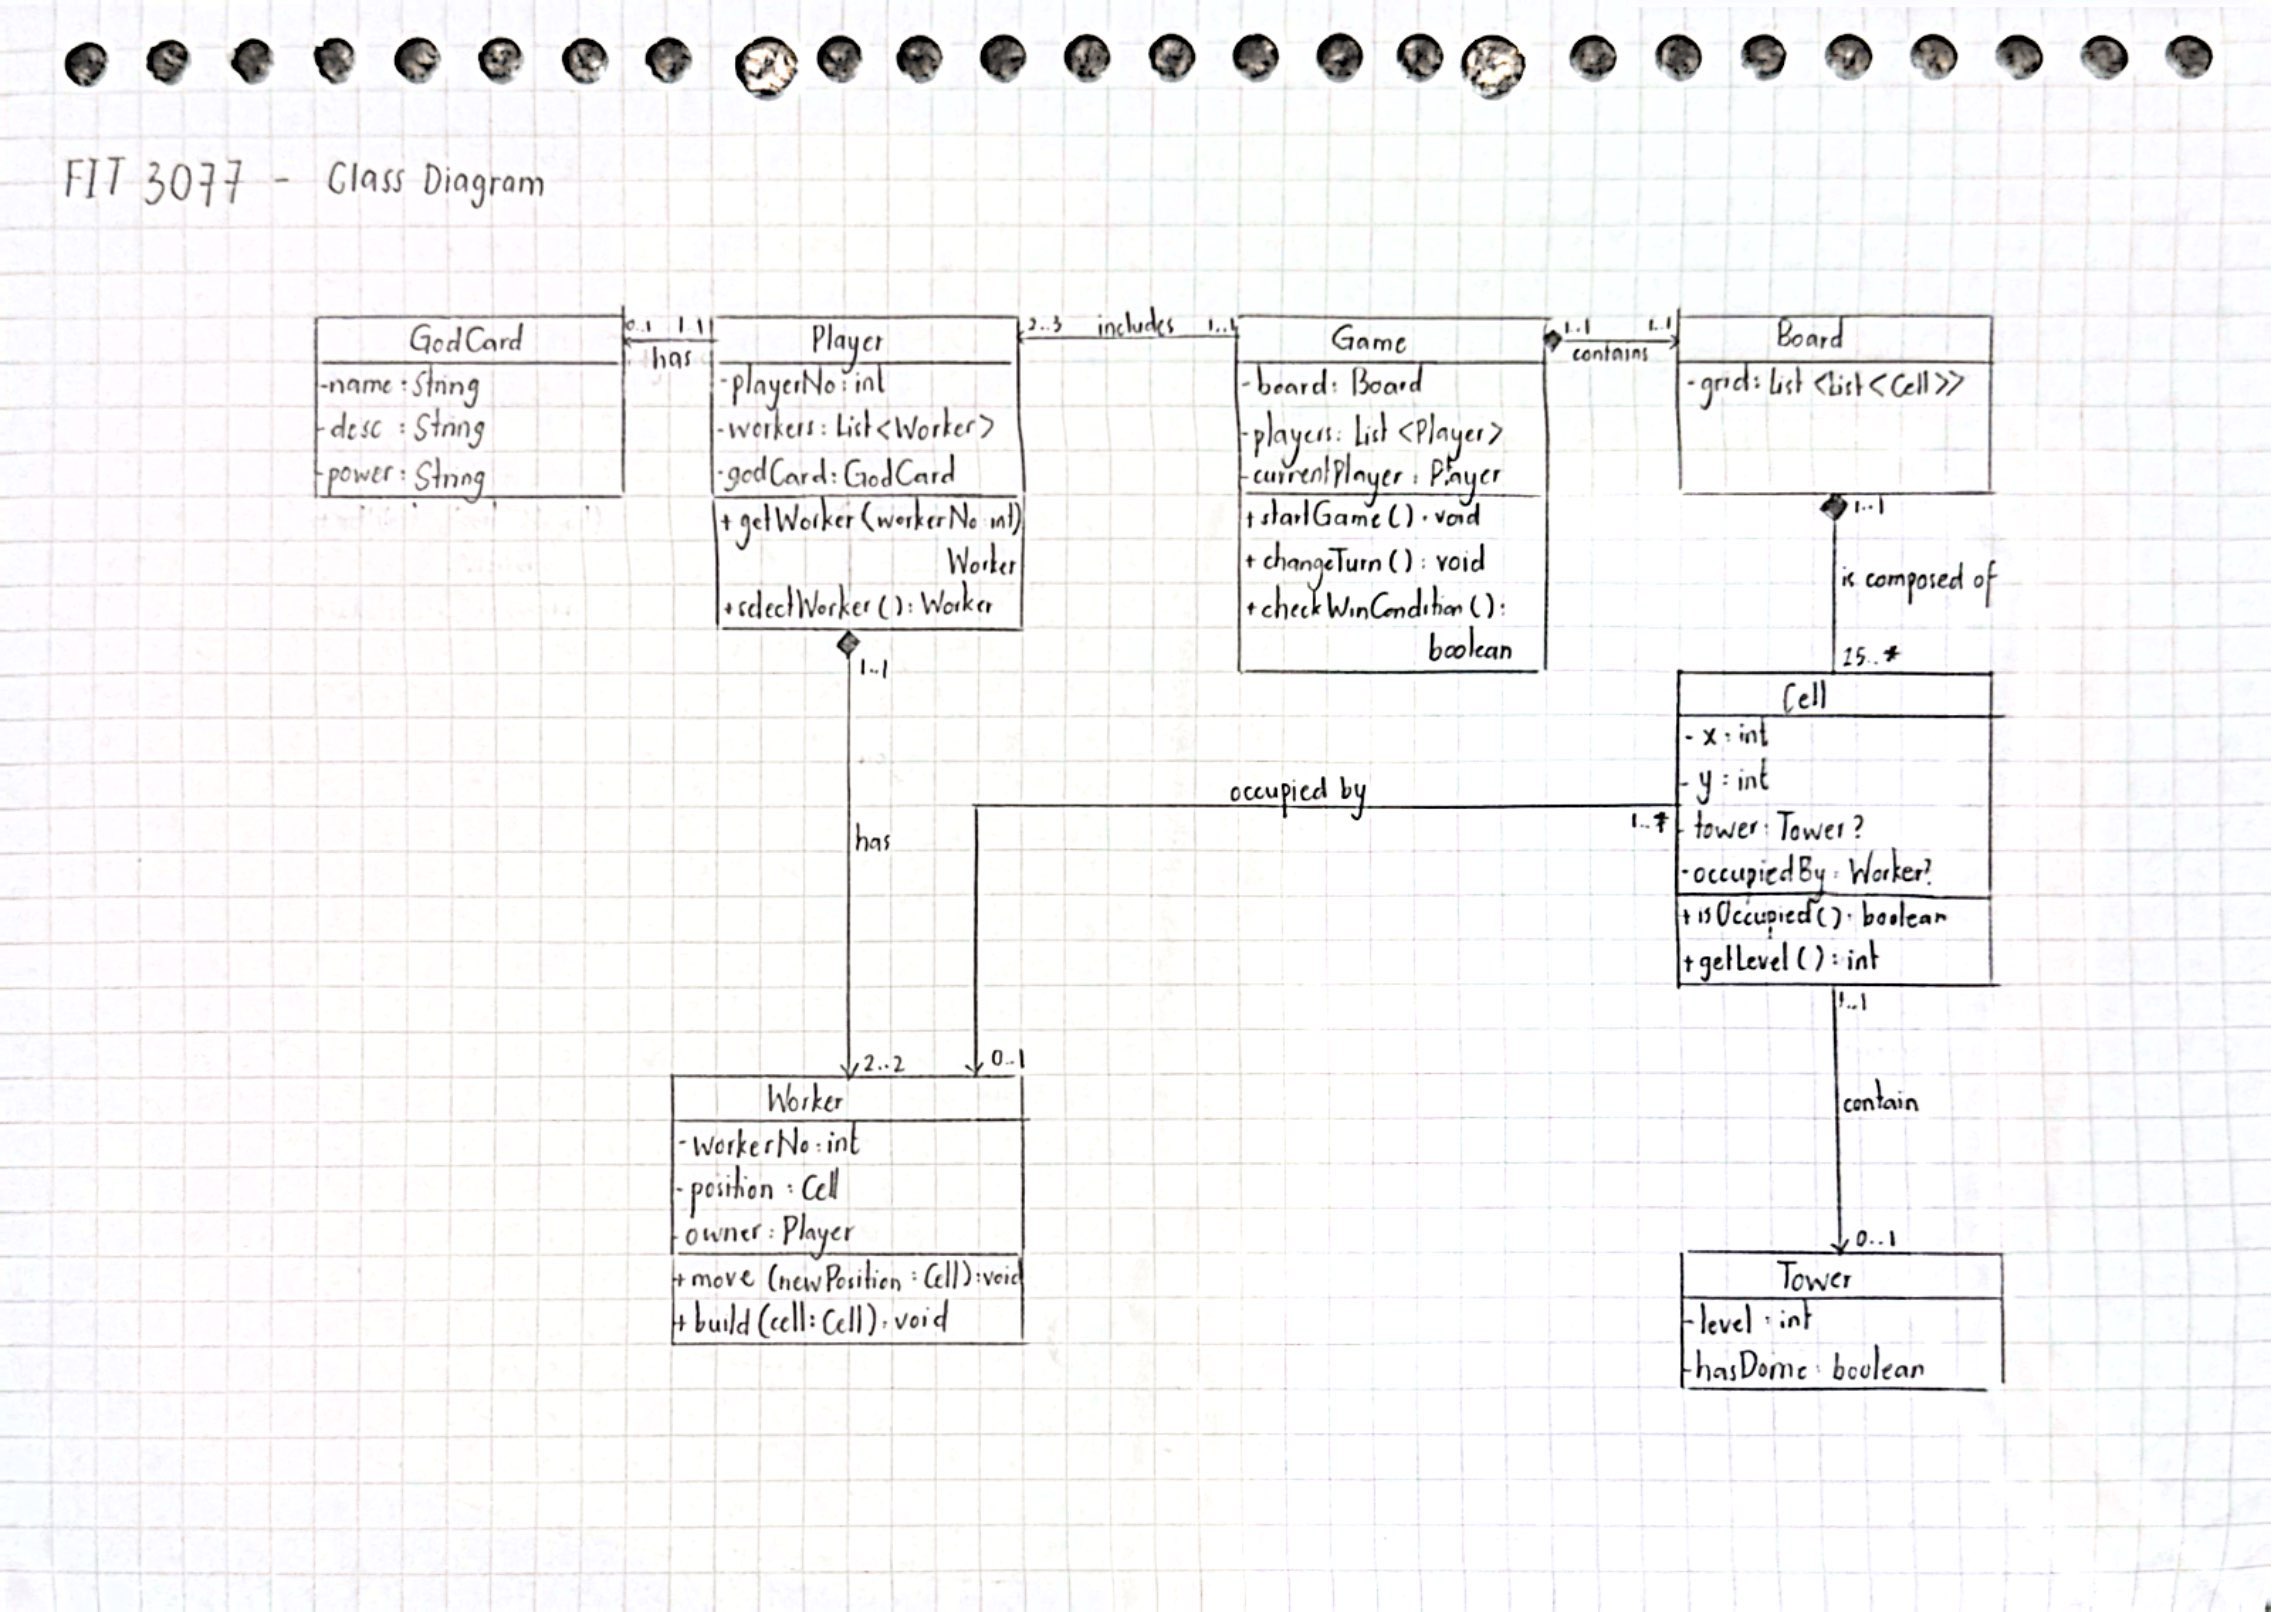 FIT 3077 - Class Diagram
GodCard
-name : String
-desc : String
-power : String
0..1 1..1
has
Player
-playerNo : int
-workers : List<Worker>
-godCard : GodCard
+ getWorker (workerNo : int)
Worker
+selectWorker () : Worker
2..3 includes 1..1
Game
-board : Board
-players : List <Player>
-currentPlayer : Player
+startGame () : void
+ changeTurn () : void
+checkWinCondition () :
boolean
1..1 1..1
contains
Board
-grid : List <List <Cell>>
1..1
is composed of
25..*
Cell
- x : int
- y : int
- tower : Tower ?
-occupiedBy : Worker?
+ isOccupied () : boolean
+ getLevel () : int
1..1
has
2..2
occupied by
1..*
0..1
Worker
-workerNo : int
- position : Cell
- owner : Player
+ move (newPosition : Cell) : void
+ build (cell : Cell) : void
1..1
contain
0..1
Tower
-level : int
-hasDome : boolean